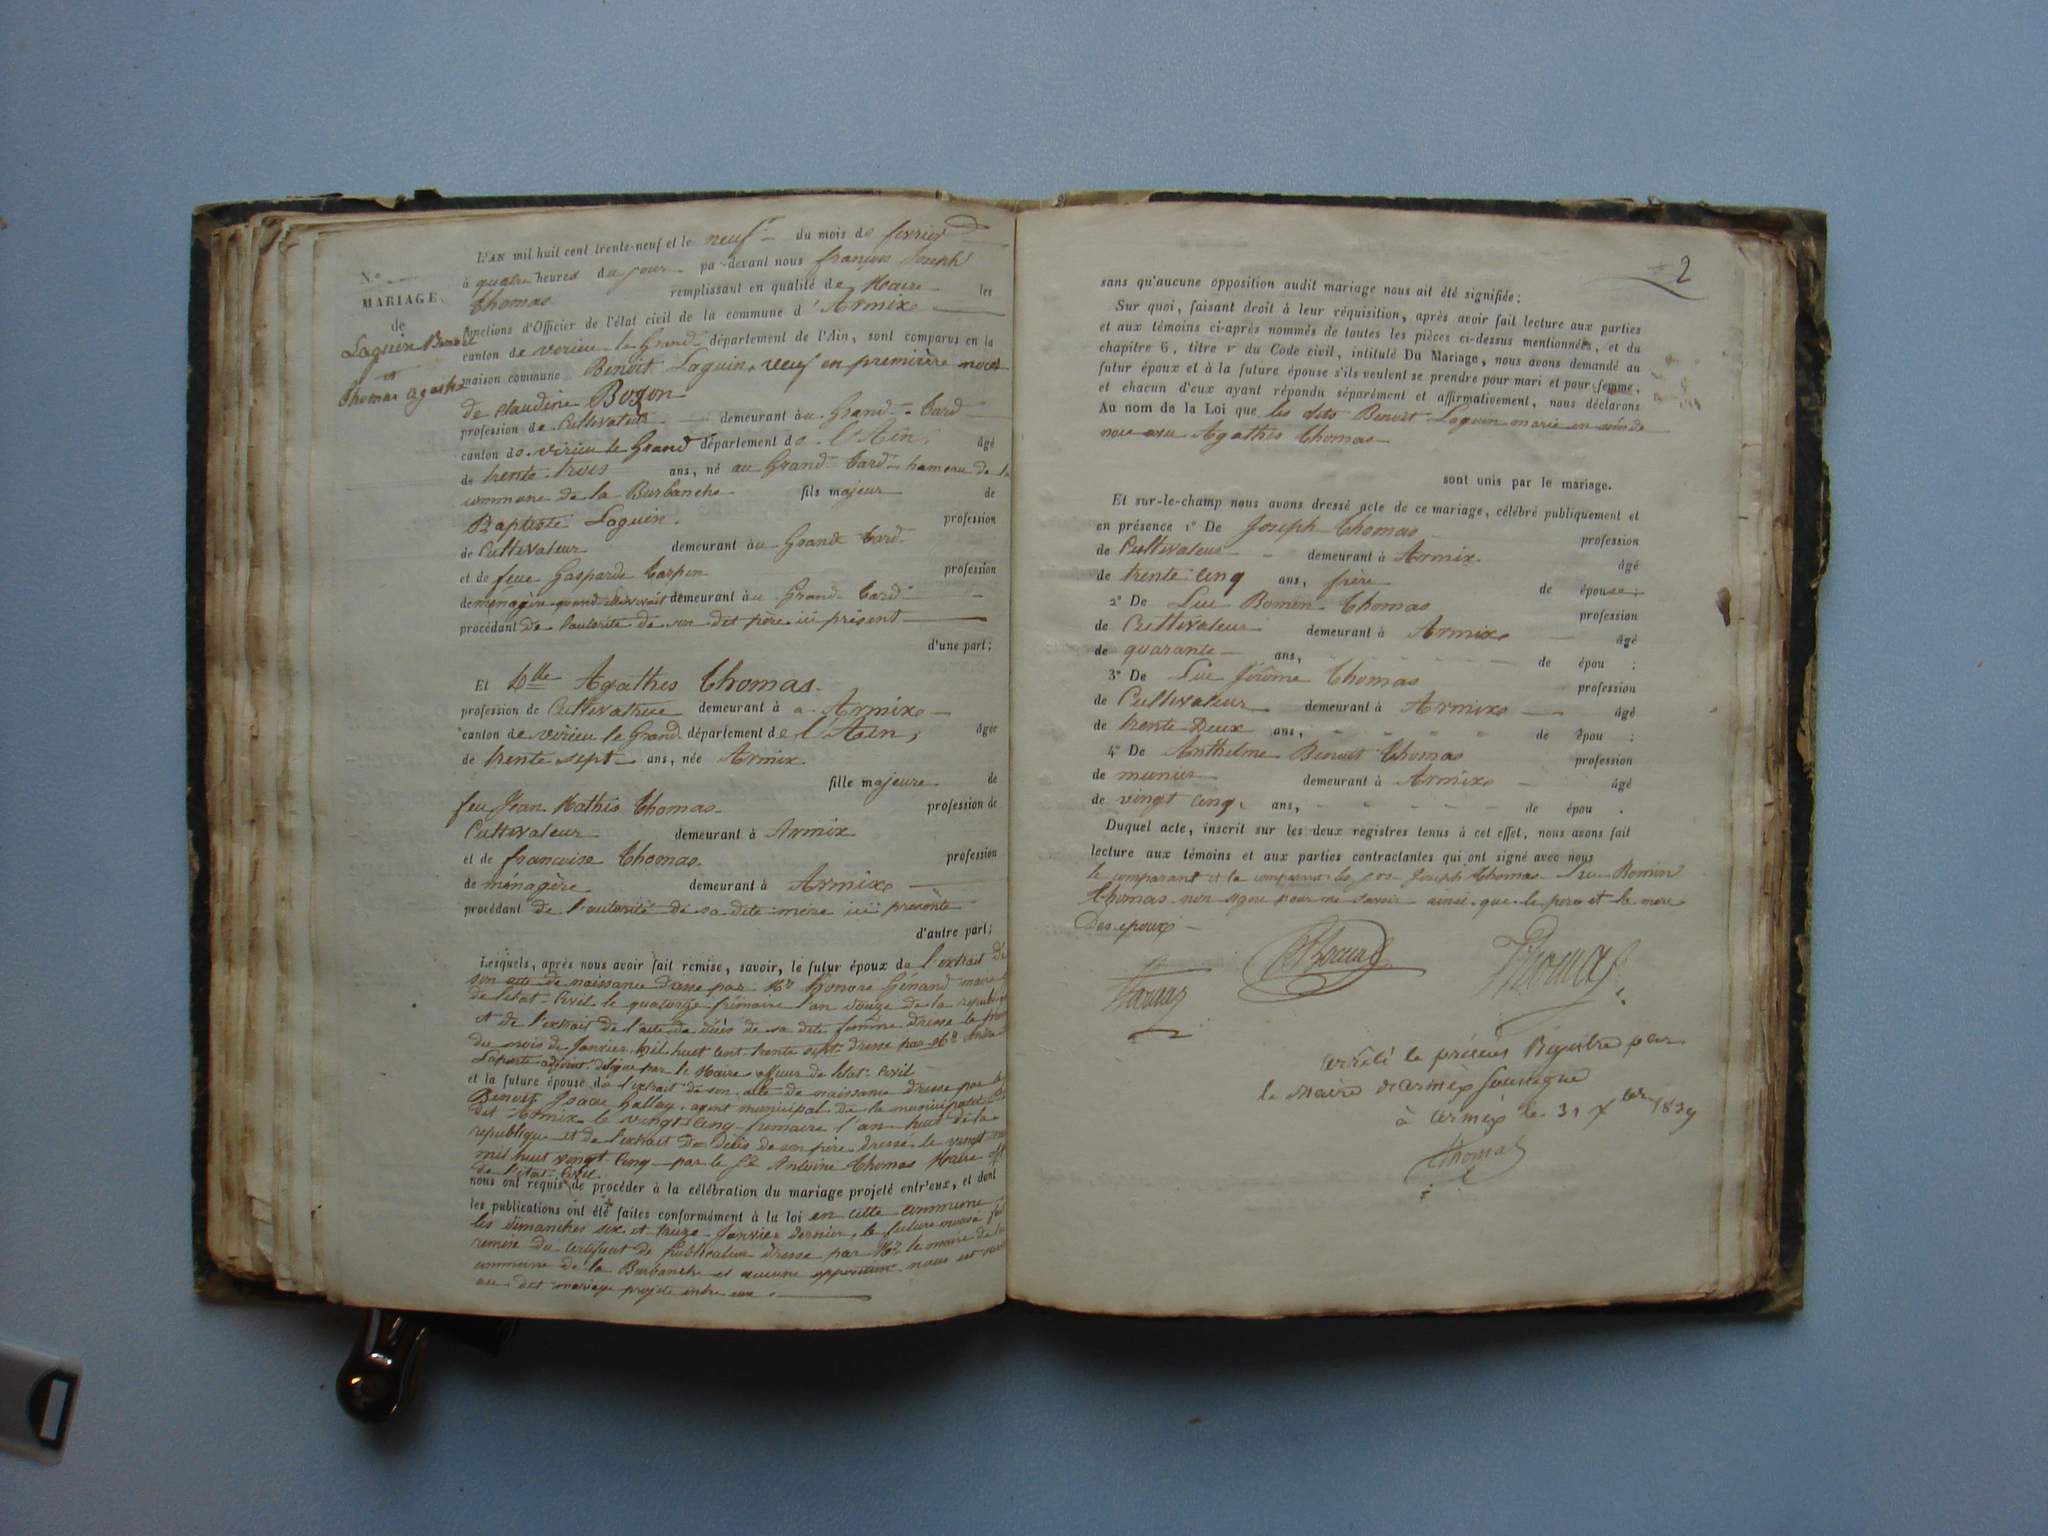 L'AN mil huit cent trente-neuf et le neuf du mois de fevrier
N°
à quatre heures du jour pa-devant nous françois Joseph
MARIAGE
Thomas remplissant en qualité de Maire les
de
fonctions d'Officier de l'état civil de la commune d'Armix
Laguin Benoit
canton de virieu le Grand département de l'Ain, sont comparus en la
et
maison commune Benoit Laguin, veuf en première noces
Thomas agathe
de Claudine Bozon
profession de Cultivateur demeurant au Grand Tard
canton de virieu le Grand département de l'Ain, âgé
de trente trois ans, né au Grand Tard hameau de la
commune de la Burbanche fils majeur de
Baptiste Laguin profession
de Cultivateur demeurant au Grand Tard
et de feue Gasparde Carpin profession
de ménagère quand elle vivait demeurant au Grand Tard
procédant de l'autorité de son dit père ici présent
d'une part;
Et Dlle Agathes Thomas
profession de Cultivatrice demeurant à a Armix
canton de virieu le Grand département de l'Ain, âgée
de trente sept ans, née Armix
fille majeure de
feu Jean Mathis Thomas profession de
Cultivateur demeurant à Armix
et de francoise Thomas profession
de ménagère demeurant à Armix
procédant de l'autorité de sa dite mère ici présente
d'autre part;
Lesquels, après nous avoir fait remise, savoir, le futur époux de l'extrait de
son acte de naissance dresse par Mr honore Génand maire
de l'etat Civil le quatorze frimaire l'an douze de la republique
et de l'extrait de l'acte de décès de sa dite femme dresse le
du mois de Janvier mil huit cent trente sept dresse par Mr
Laporte adjoint délégué par le Maire officier de l'etat Civil
et la future épouse de l'extrait de son acte de naissance dresse par le
Benoit Isaac Gallay agent municipal de la municipalité
dit Armix le vingt cinq frimaire l'an huit de la
republique et de l'extrait de décès de son père dressé le vingt
mil huit vingt cinq par le Sr Antoine Thomas Maire
de l'etat Civil
nous ont requis de procéder à la célébration du mariage projeté entr'eux, et dont
les publications ont été faites conformément à la loi en cette commune
les dimanches six et treize Janvier dernier, le future nous a fait
remise du certificat de Publication dresse par Mr le maire de la
commune de la Burbanche et aucune opposition nous est
au dit mariage projeté entre eux.
2
sans qu'aucune opposition audit mariage nous ait été signifiée;
Sur quoi, faisant droit à leur réquisition, après avoir fait lecture aux parties
et aux témoins ci-après nommés de toutes les pièces ci-dessus mentionnées, et du
chapitre 6, titre v du Code civil, intitulé Du Mariage, nous avons demandé au
futur époux et à la future épouse s'ils veulent se prendre pour mari et pour femme,
et chacun d'eux ayant répondu séparément et affirmativement, nous déclarons
Au nom de la Loi que les dits Benoit Laguin marie en
avec Agathes Thomas
sont unis par le mariage.
Et sur-le-champ nous avons dressé acte de ce mariage, célébré publiquement et
en présence 1° De Joseph Thomas profession
de Cultivateur demeurant à Armix âgé
de trente cinq ans, frère de épouse;
2° De Luc Romin Thomas profession
de Cultivateur demeurant à Armix âgé
de quarante ans, de épou ;
3° De Luc Jérôme Thomas profession
de Cultivateur demeurant à Armix âgé
de trente Deux ans, de épou ;
4° De Anthelme Benoit Thomas profession
de demeurant à Armix âgé
de vingt cinq ans, de épou .
Duquel acte, inscrit sur les deux registres tenus à cet effet, nous avons fait
lecture aux témoins et aux parties contractantes qui ont signé avec nous
le comparant et la Joseph Thomas Luc Romin
Thomas non signe pour ne savoir ainsi que le père et la mère
des epoux
Thomas
arrêté le présent Registre par
le Maire d'armix soussigné
à armix le 31 Xbre 1839
Thomas